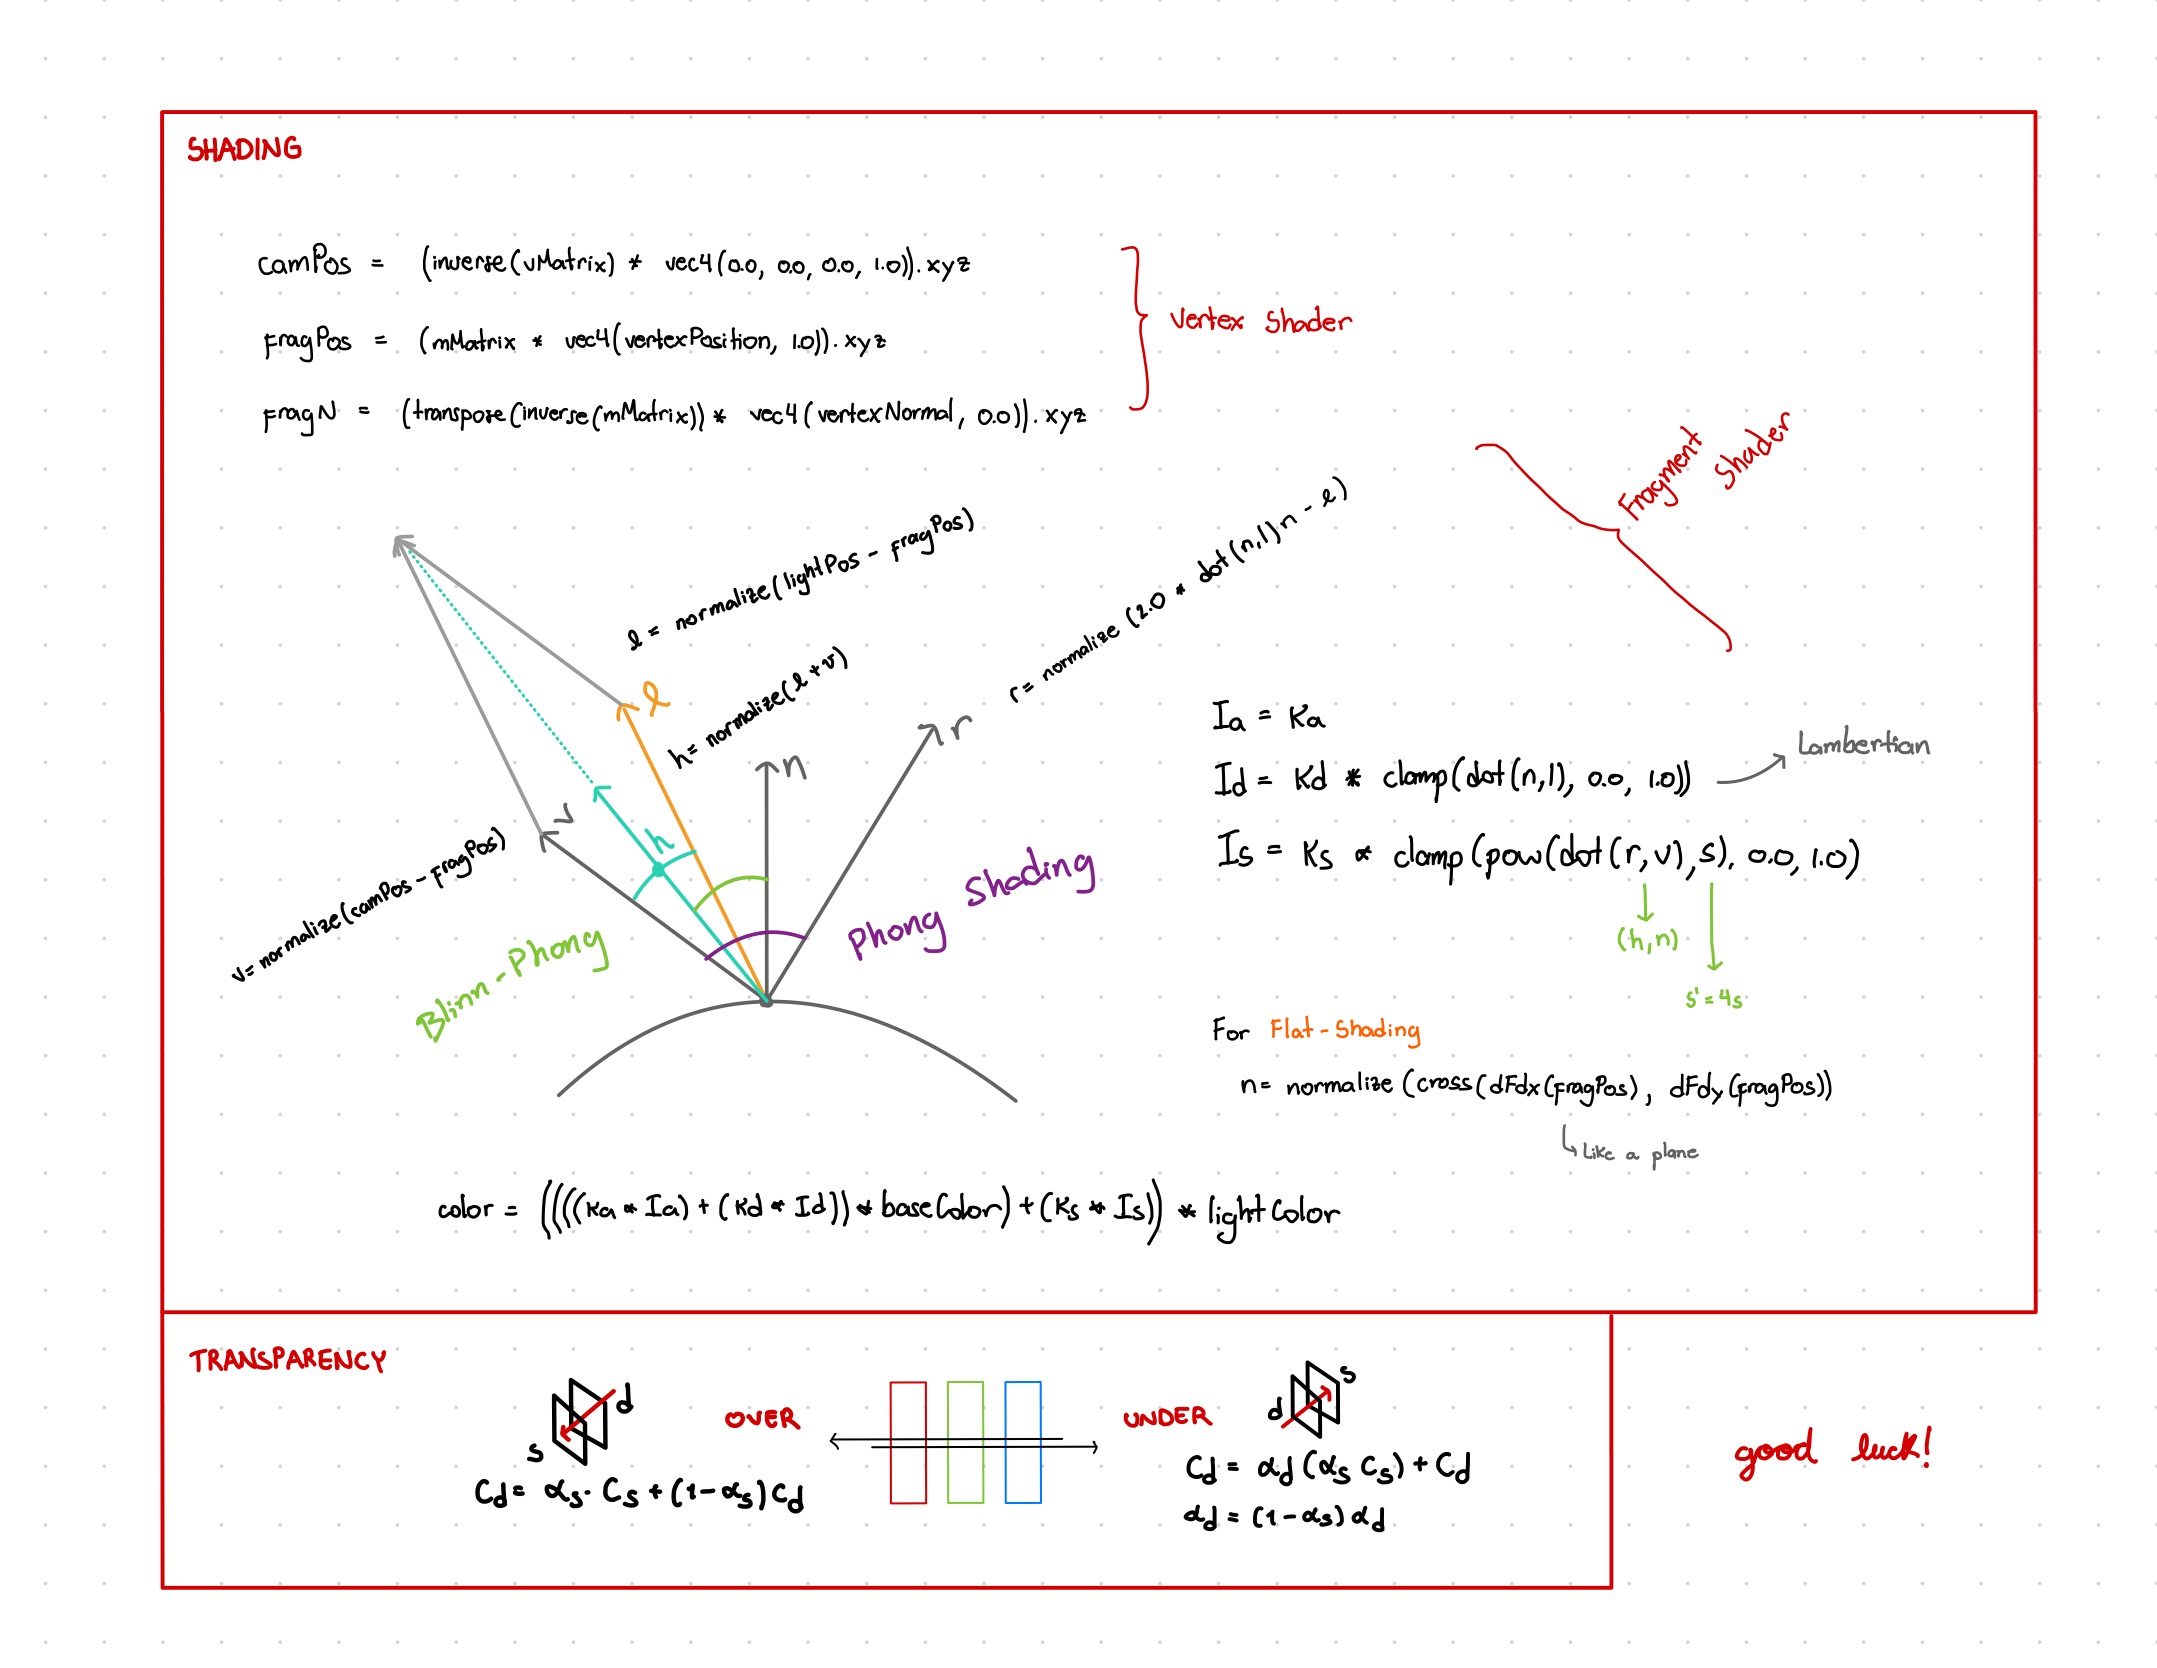 SHADING
camPos = (inverse(vMatrix) * vec4(0.0, 0.0, 0.0, 1.0)).xyz
fragPos = (mMatrix * vec4(vertexPosition, 1.0)).xyz
fragN = (transpose(inverse(mMatrix)) * vec4(vertexNormal, 0.0)).xyz
Vertex Shader
Fragment Shader
l = normalize(lightPos - fragPos)
h = normalize(l + v)
r = normalize(2.0 * dot(n,l)n - l)
v = normalize(camPos - fragPos)
l
n
r
v
h
Blinn-Phong
Phong Shading
Ia = Ka
Id = Kd * clamp(dot(n,l), 0.0, 1.0)) → Lambertian
Is = Ks * clamp(pow(dot(r,v),s), 0.0, 1.0)
(h,n)
s' = 4s
For Flat-Shading
n = normalize(cross(dFdx(fragPos), dFdy(fragPos))
Like a plane
color = (((((Ka * Ia) + (Kd * Id)) * baseColor) + (Ks * Is)) * lightColor
TRANSPARENCY
d
s
OVER
Cd = αs · Cs + (1 - αs) Cd
UNDER
s
d
Cd = αd (αs Cs) + Cd
αd = (1 - αs) αd
good luck!